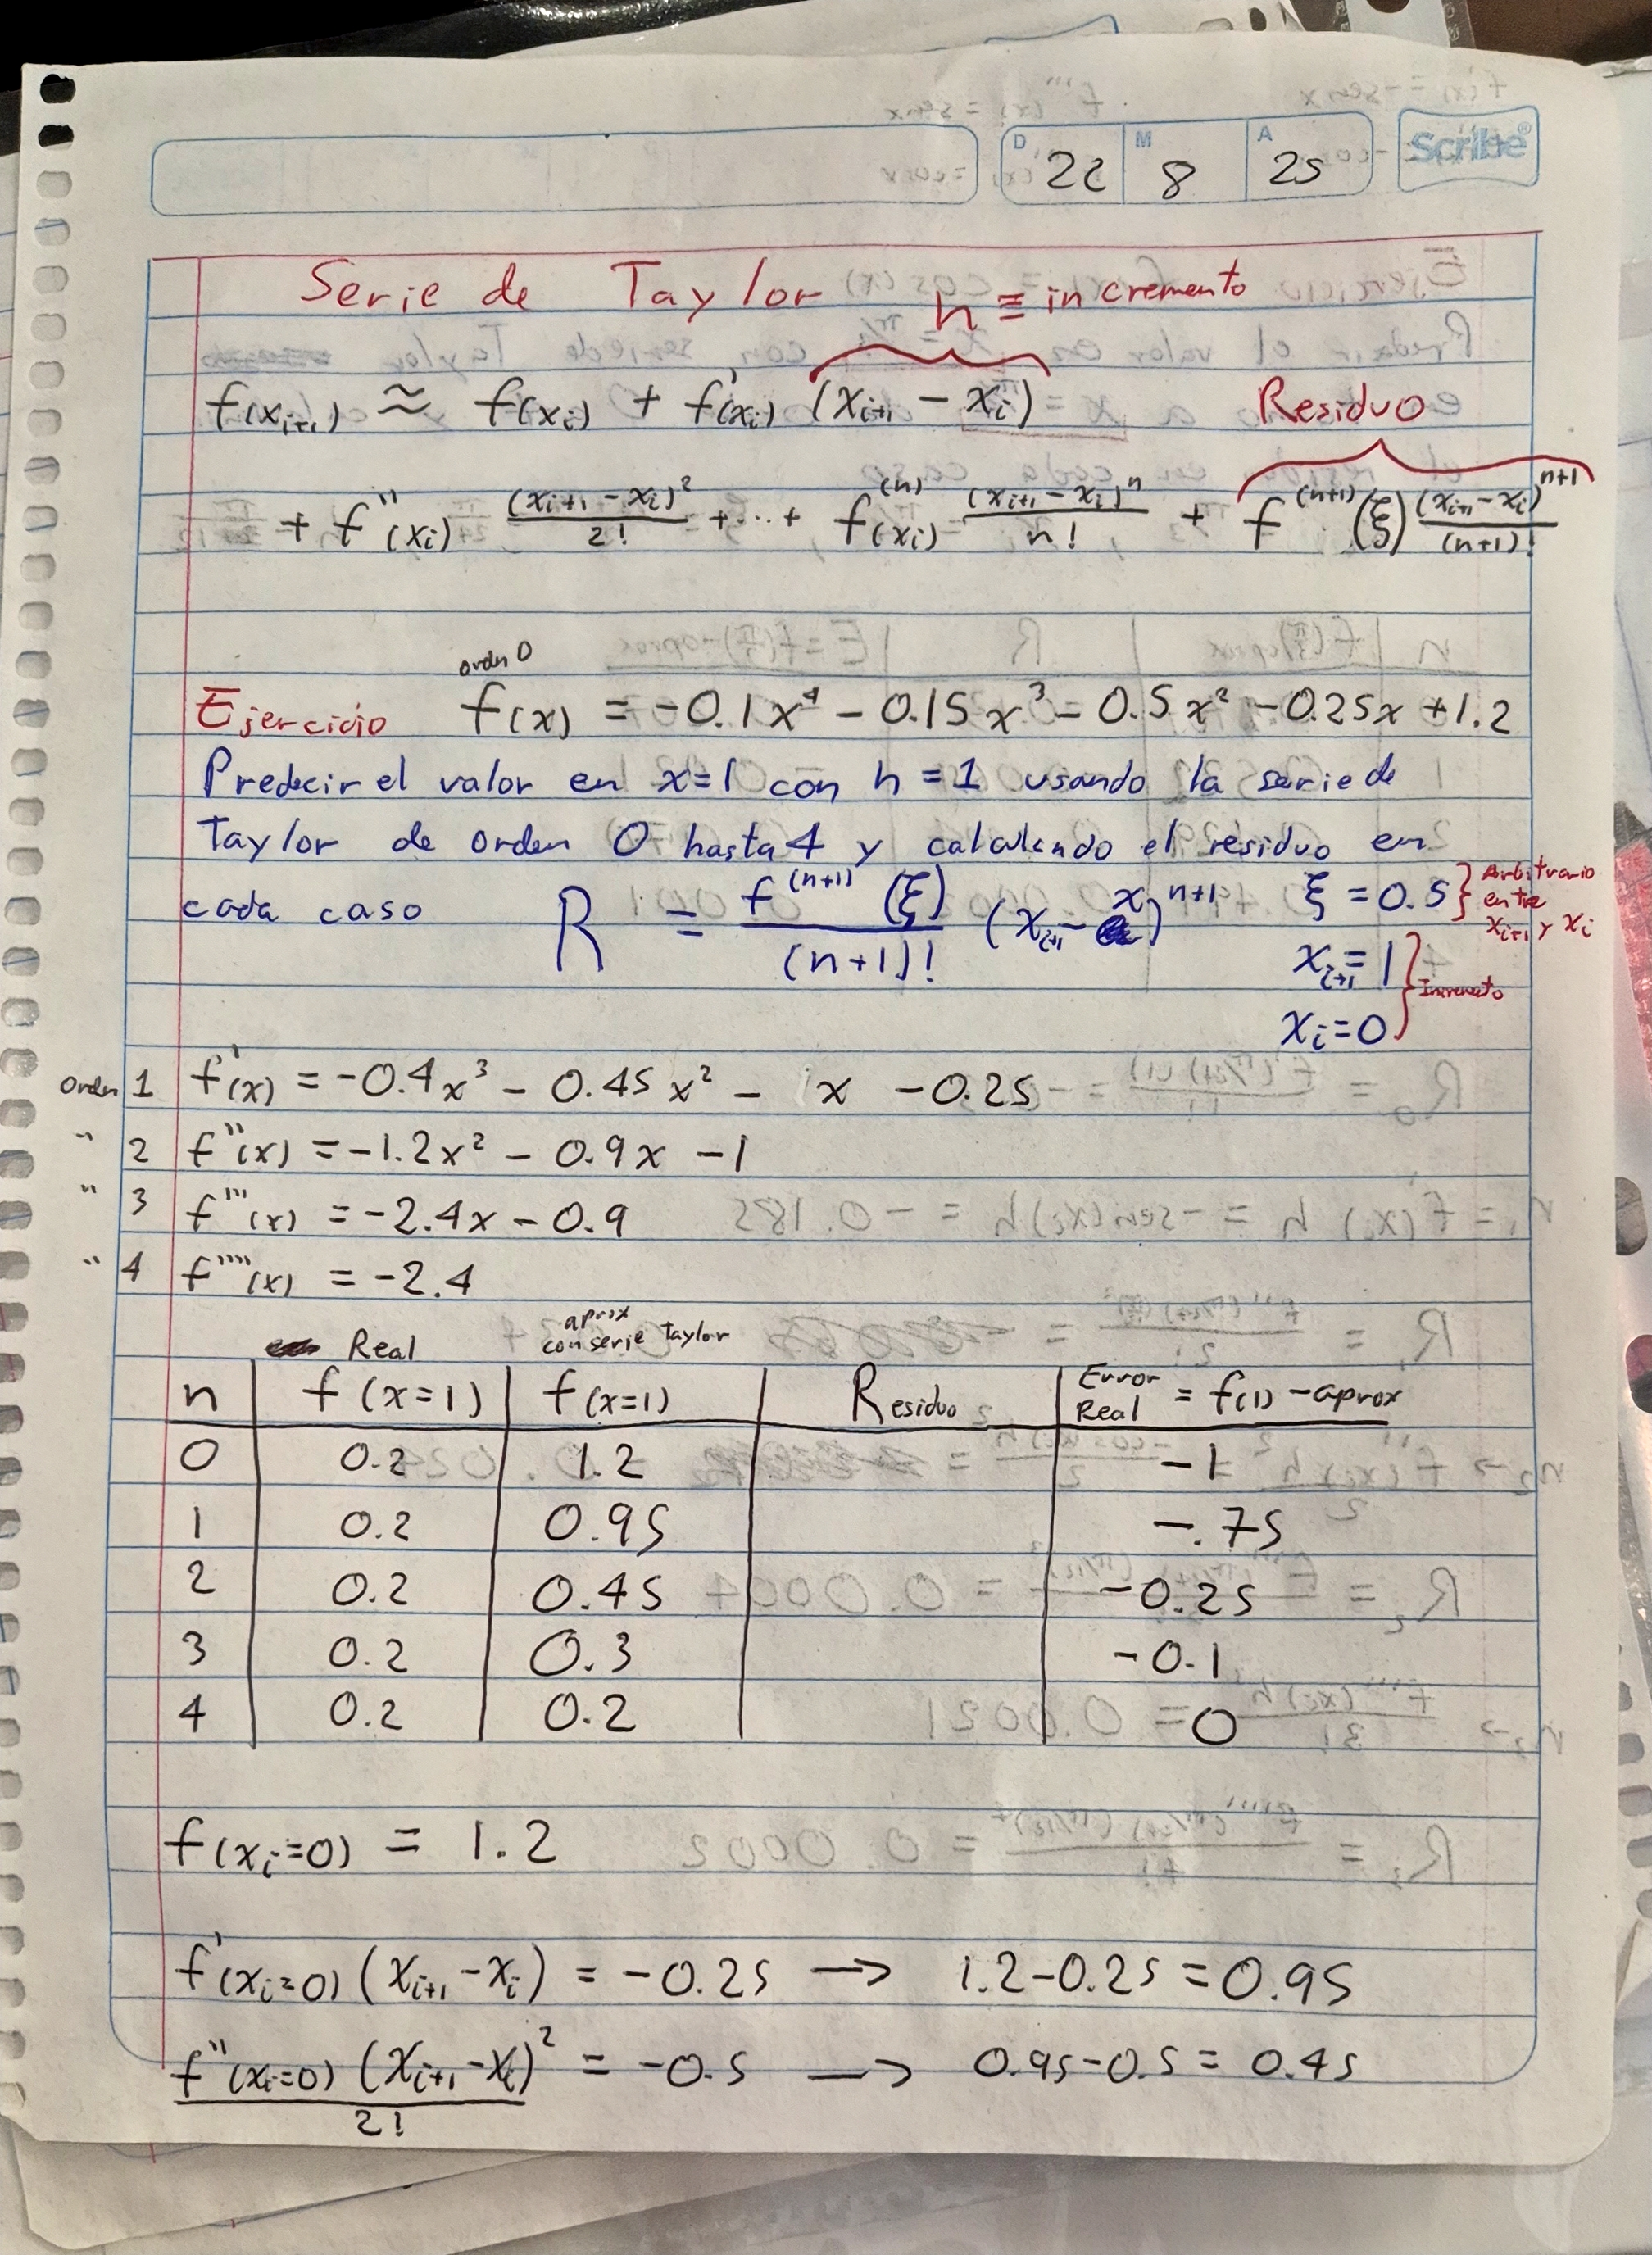 D 22 M 8 A 25 Scribe®
Serie de Taylor h ≡ incremento
f(xᵢ₊₁) ≈ f(xᵢ) + f'(xᵢ) (xᵢ₊₁ - xᵢ) Residuo
+ f''(xᵢ) (xᵢ₊₁ - xᵢ)²/2! + ... + f⁽ⁿ⁾(xᵢ) (xᵢ₊₁ - xᵢ)ⁿ/n! + f⁽ⁿ⁺¹⁾(ξ) (xᵢ₊₁ - xᵢ)ⁿ⁺¹/(n+1)!
orden 0
Ejercicio f(x) = -0.1x⁴ - 0.15x³ - 0.5x² - 0.25x + 1.2
Predecir el valor en x=1 con h=1 usando la serie de
Taylor de orden 0 hasta 4 y calculando el residuo en
cada caso R = f⁽ⁿ⁺¹⁾(ξ)/(n+1)! (xᵢ₊₁ - x)ⁿ⁺¹ ξ = 0.5 } Arbitrario entre xᵢ₊₁ y xᵢ
xᵢ₊₁ = 1
xᵢ = 0 } Incremento
Orden 1 f'(x) = -0.4x³ - 0.45x² - x - 0.25
" 2 f''(x) = -1.2x² - 0.9x - 1
" 3 f'''(x) = -2.4x - 0.9
" 4 f''''(x) = -2.4
Real aprox con serie Taylor
n f(x=1) f(x=1) Residuo Error Real = f(1) - aprox
0 0.2 1.2 -1
1 0.2 0.95 -.75
2 0.2 0.45 -0.25
3 0.2 0.3 -0.1
4 0.2 0.2 0
f(xᵢ=0) = 1.2
f'(xᵢ=0) (xᵢ₊₁ - xᵢ) = -0.25 → 1.2-0.25 = 0.95
f''(xᵢ=0) (xᵢ₊₁ - xᵢ)²/2! = -0.5 → 0.95-0.5 = 0.45